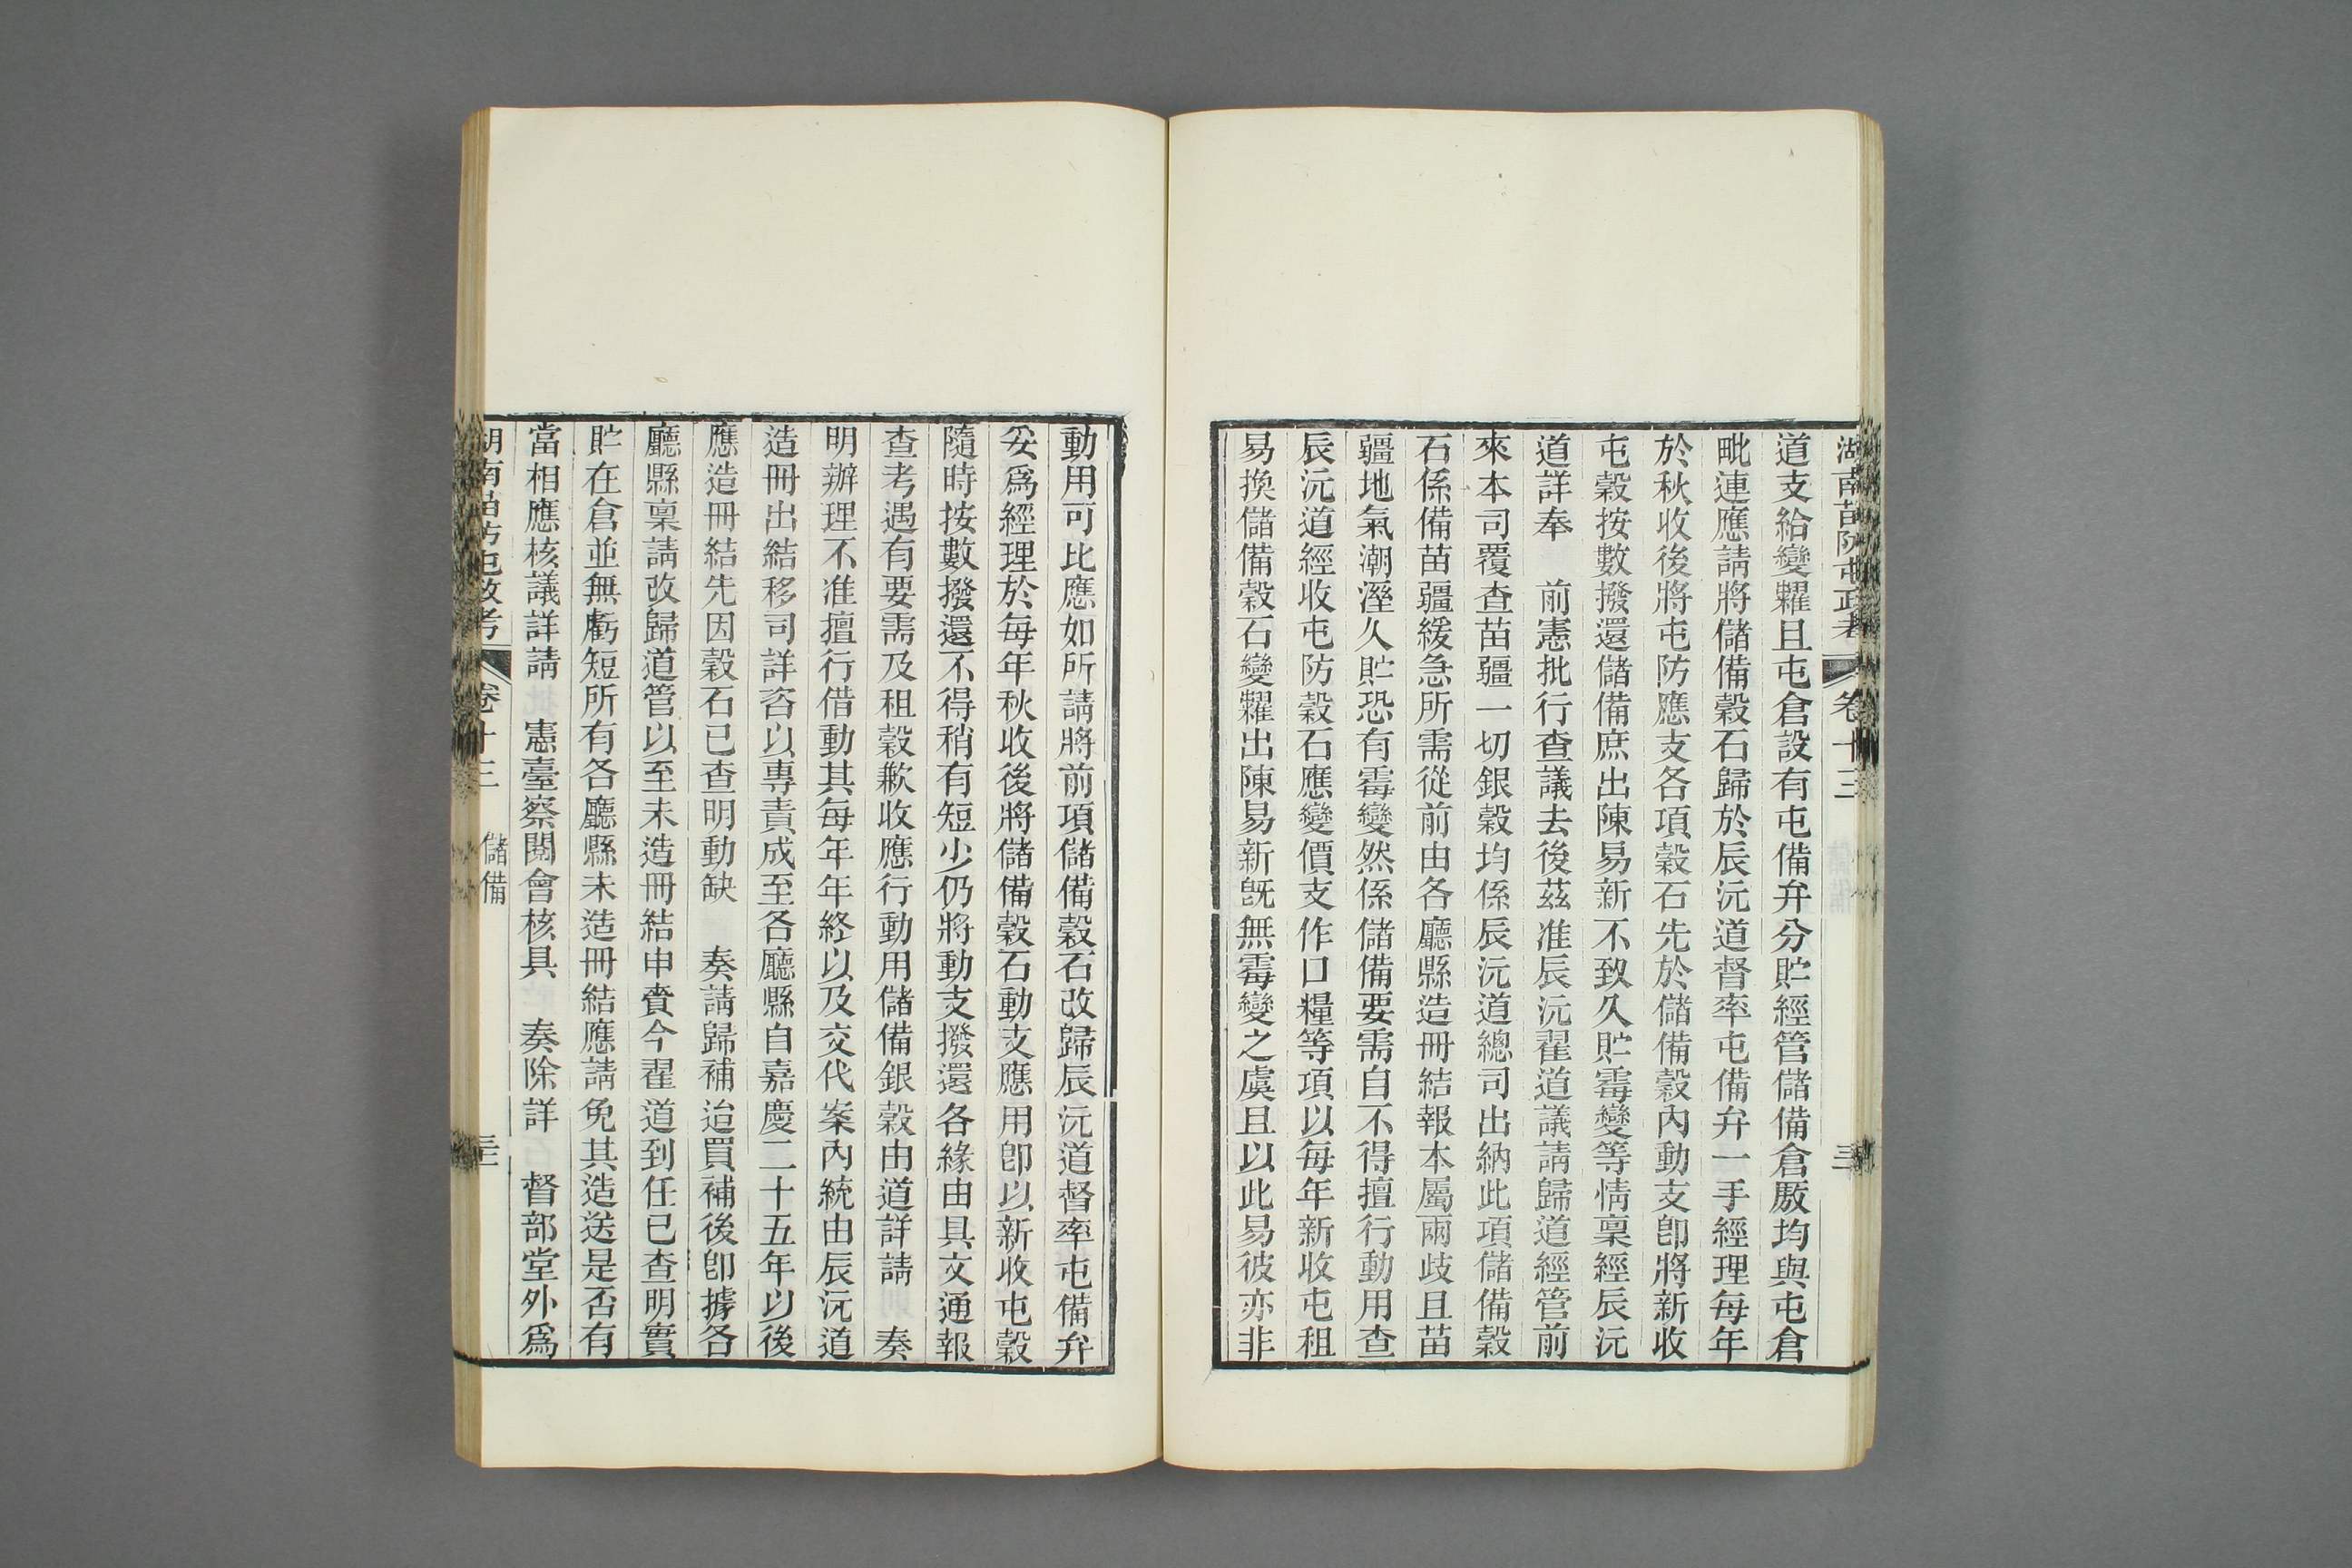 湖南苗防屯政考 卷十三
道支給變糶且屯倉設有屯備弁分貯經管儲備倉厫均與屯倉
毗連應請將儲備穀石歸於辰沅道督率屯備弁一手經理每年
於秋收後將屯防應支各項穀石先於儲備穀內動支卽將新收
屯穀按數撥還儲備庶出陳易新不致久貯霉變等情稟經辰沅
道詳奉 前憲批行查議去後茲准辰沅翟道議請歸道經管前
來本司覆查苗疆一切銀穀均係辰沅道總司出納此項儲備穀
石係備苗疆緩急所需從前由各廳縣造冊結報本屬兩歧且苗
疆地氣潮溼久貯恐有霉變然係儲備要需自不得擅行動用查
辰沅道經收屯防穀石應變價支作口糧等項以每年新收屯租
易換儲備穀石變糶出陳易新旣無霉變之虞且以此易彼亦非
動用可比應如所請將前項儲備穀石改歸辰沅道督率屯備弁
妥爲經理於每年秋收後將儲備穀石動支應用卽以新收屯穀
隨時按數撥還不得稍有短少仍將動支撥還各緣由具文通報
查考遇有要需及租穀歉收應行動用儲備銀穀由道詳請 奏
明辦理不准擅行借動其每年年終以及交代案內統由辰沅道
造冊出結移司詳咨以專責成至各廳縣自嘉慶二十五年以後
應造冊結先因穀石已查明動缺 奏請歸補迨買補後卽據各
廳縣稟請改歸道管以至未造冊結申賫今翟道到任已查明實
貯在倉並無虧短所有各廳縣未造冊結應請免其造送是否有
當相應核議詳請 憲臺察閱會核具 奏除詳 督部堂外爲
湖南苗防屯政考 卷十三 儲備